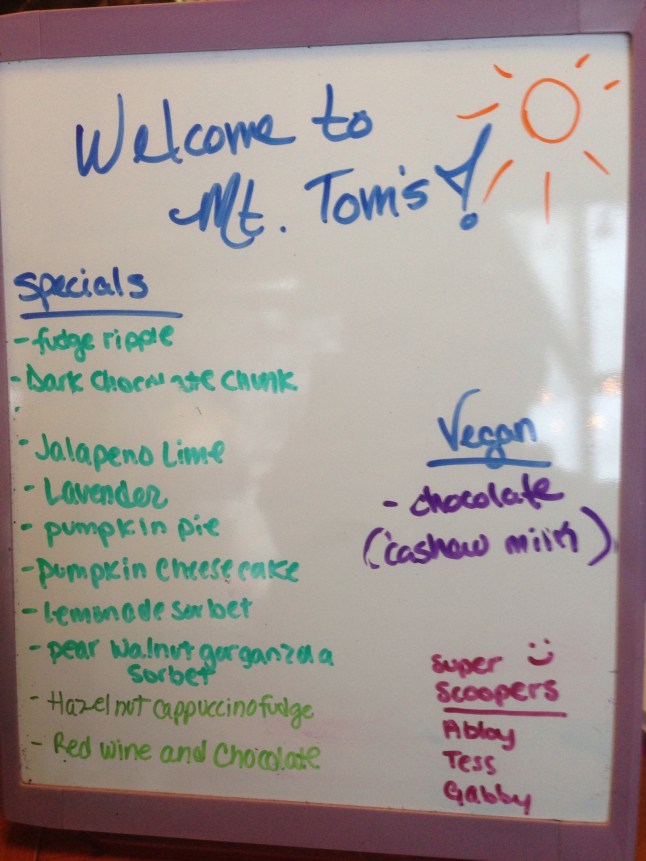 Welcome to
Mt. Tom's!
Specials
- fudge ripple
- Dark Chocolate Chunk
- Jalapeno Lime
- Lavender
- pumpkin pie
- pumpkin cheesecake
- lemonade sorbet
- pear walnut gorganzola
sorbet
- Hazelnut cappuccino fudge
- Red wine and Chocolate
Vegan
- chocolate
(cashew milk)
Super
Scoopers
Abby
Tess
Gabby